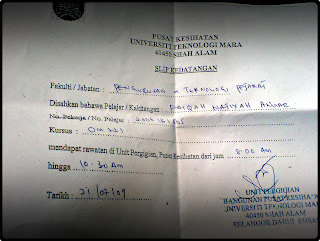 PUSAT KESIHATAN
UNIVERSITI TEKNOLOGI MARA
40450 SHAH ALAM
SLIP KEDATANGAN
Fakulti / Jabatan : PENGURUSAN - TEKNOLOGI PEJABAT
Disahkan bahawa Pelajar / Kakitangan :
No. Pekerja / No. Pelajar :
Kursus : OM 221
mendapat rawatan di Unit Pergigian, Pusat Kesihatan dari jam 8:00 AM
hingga 10:30 AM
Tarikh : 21/07/09
UNIT PERGIGIAN
BANGUNAN PUSAT KESIHATAN
UNIVERSITI TEKNOLOGI MARA
40450 SHAH ALAM
SELANGOR DARUL EHSAN